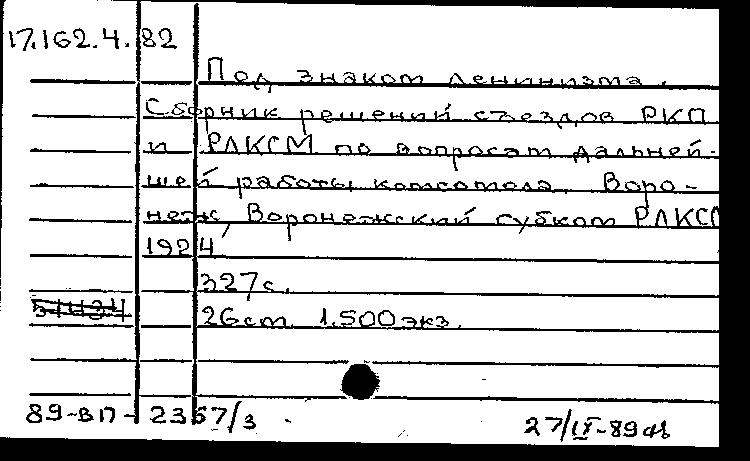 17.162.4.82
Под знаком ленинизма.
Сборник решений съездов РКП
и РЛКСМ по вопросам дальней-
шей работы комсомола. Воро-
неж, Воронежский губком РЛКС
1924
327с.
26см 1.500 экз.
89-ВП-2367/3
27/IX-89